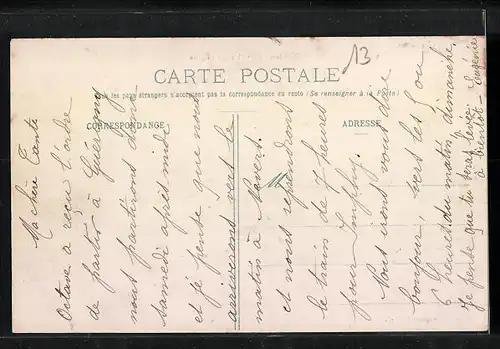 13
CARTE POSTALE
Tous les pays étrangers n'acceptent pas la correspondance au recto (Se renseigner à la Poste)
CORRESPONDANCE
ADRESSE
Ma chère Tante
Octave a reçu l'ordre
de partir à Guérigny
nous partirons donc
samedi après midi
et je pense que nous
arriverons vers le
matin à Nevers.
et nous reprendrons
le train de 7 heures
pour Imphy.
Nous irons vous dire
bonjour, vers les 5 ou
6 heures du matin dimanche,
Je pense que tu seras levée.
à bientôt. Eugénie